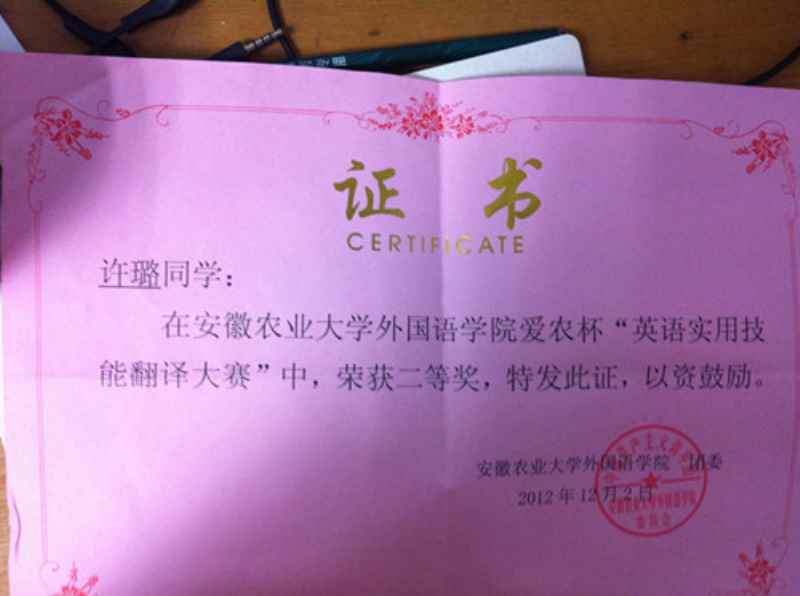 证书
CERTIFICATE
许璐同学：
在安徽农业大学外国语学院爱农杯“英语实用技
能翻译大赛”中，荣获二等奖，特发此证，以资鼓励。
安徽农业大学外国语学院 团委
2012年12月2日
委员会